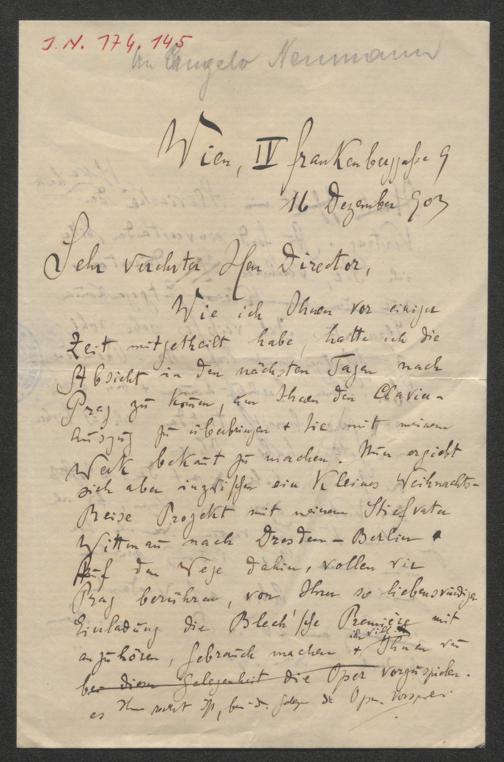 J.N. 174.145
An Angelo Neumann
Wien, IV Frankenberggasse 9
16 Dezember 903
Sehr verehrter Herr Director,
Wie ich Ihnen vor einiger
Zeit mitgetheilt habe, hatte ich die
Absicht in den nächsten Tagen nach
Prag zu kommen, um Ihnen den Clavier-
auszug zu überbringen + Sie mit meinem
Werk bekannt zu machen. Nun ergiebt
sich aber inzwischen ein kleines Weihnachts-
Reise Projekt mit meinem Stiefvater
Wittmann nach Dresden - Berlin
Auf dem Wege dahin, wollen wir
Prag berühren, von Ihrer so liebenswürdigen
Einladung die Blech'sche Première mit
anzuhören, Gebrauch machen + Ihnen
bei dieser Gelegenheit die Oper vorzuspielen.
es Ihnen recht ist, bei der die Oper